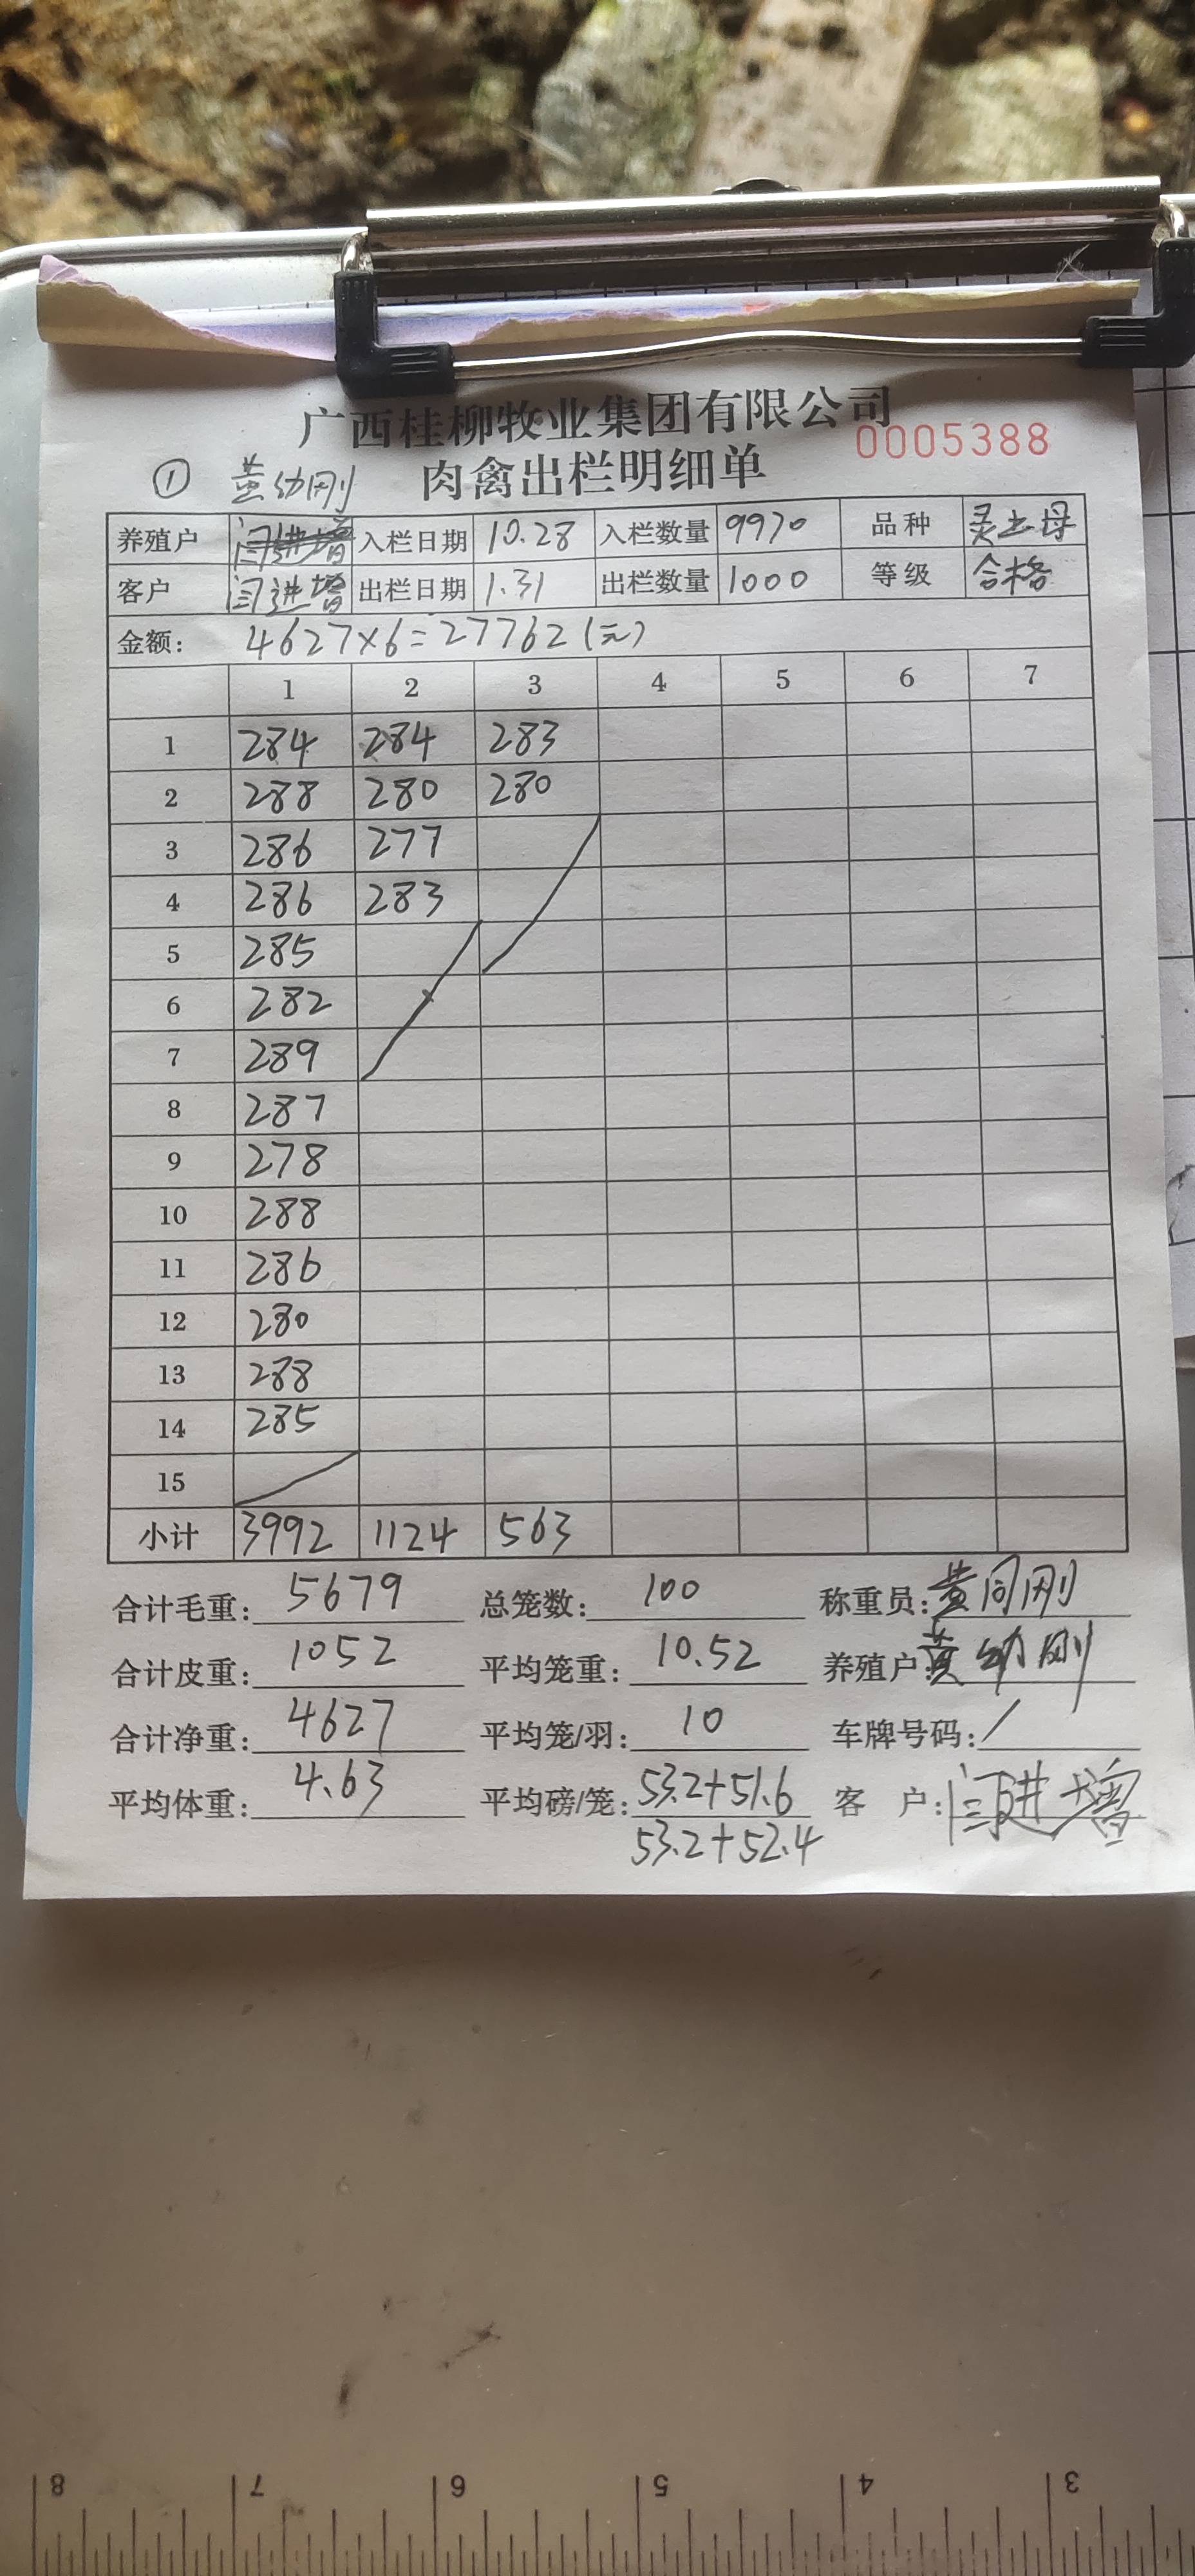 广西桂柳牧业集团有限公司
0005388
① 黄幼刚 肉禽出栏明细单
养殖户 闫进增 入栏日期 10.28 入栏数量 9970 品种 灵土母
客户 闫进增 出栏日期 1.31 出栏数量 1000 等级 合格
金额: 4627×6=27762(元)
1 2 3 4 5 6 7
1 284 284 283
2 288 280 280
3 286 277
4 286 283
5 285
6 282
7 289
8 287
9 278
10 288
11 286
12 280
13 288
14 285
15
小计 3992 1124 563
合计毛重: 5679 总笼数: 100 称重员: 黄同刚
合计皮重: 1052 平均笼重: 10.52 养殖户: 黄幼刚
合计净重: 4627 平均笼/羽: 10 车牌号码: /
平均体重: 4.63 平均磅/笼: 53.2+51.6 客 户: 闫进增
53.2+52.4
8 7 6 5 4 3